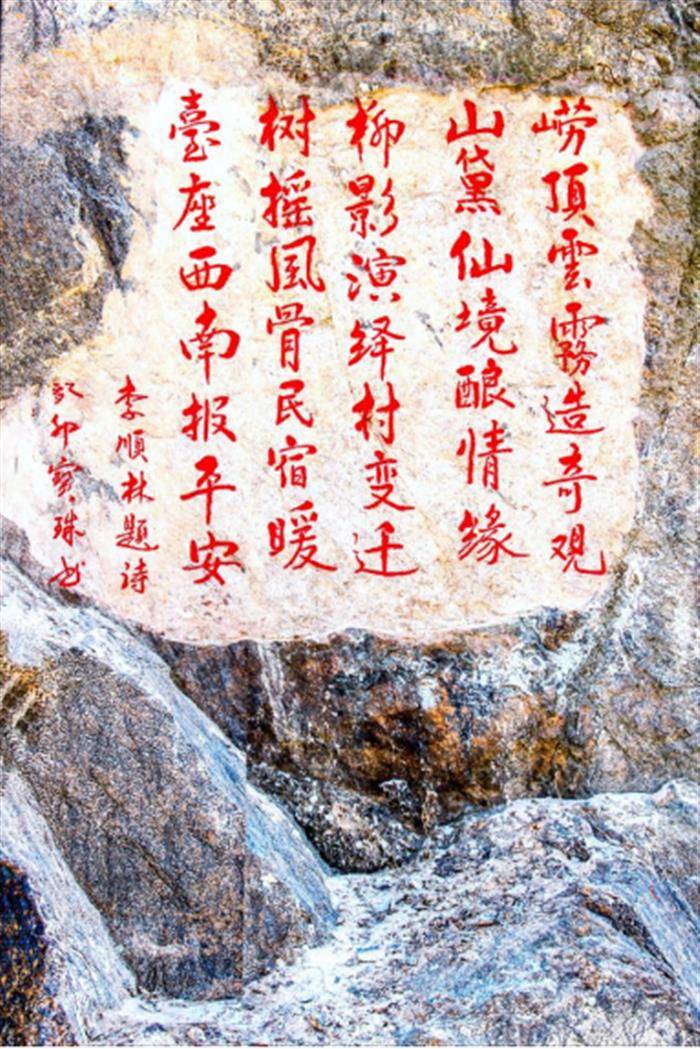 崂頂雲霧造奇观
山黛仙境酿情缘
柳影演绎村变迁
树摇风骨民宿暖
臺座西南报平安
李順林题诗
癸卯寳珠书